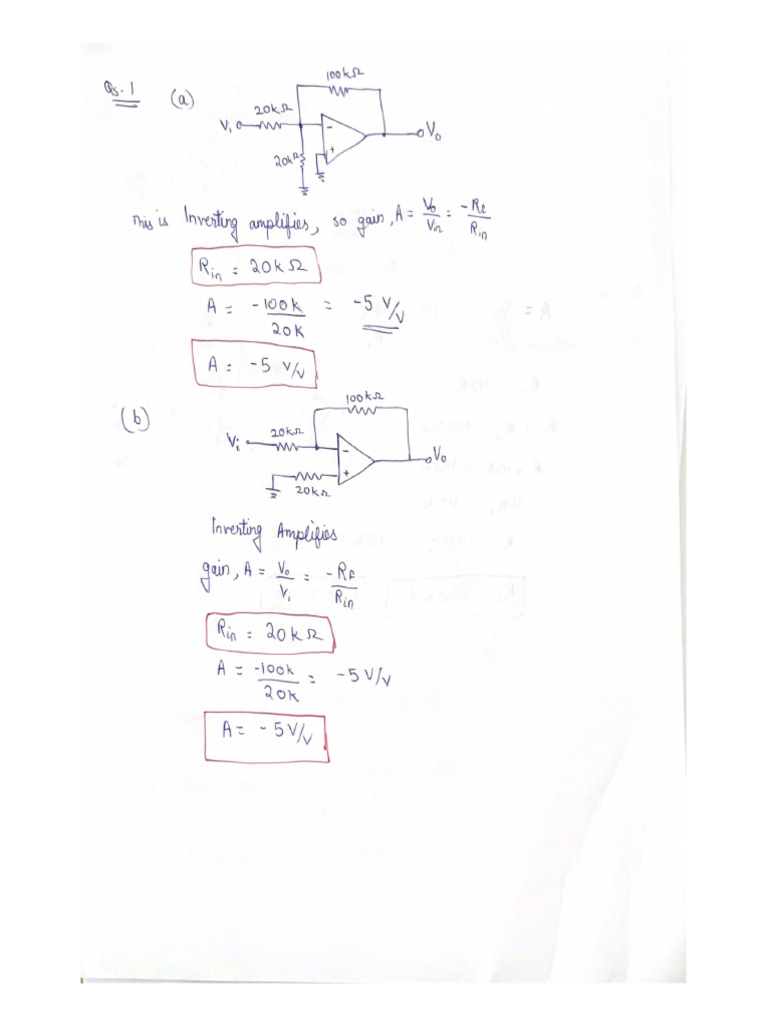 Qs. 1 (a)
100kΩ
20kΩ
Vi
-
+
Vo
20kΩ
This is Inverting amplifies, so gain, A = Vo/Vin = -Rf/Rin
Rin = 20kΩ
A = -100k/20k = -5 V/V
A = -5 V/V
(b)
100kΩ
20kΩ
Vi
-
+
Vo
20kΩ
Inverting Amplifies
gain, A = Vo/Vi = -Rf/Rin
Rin = 20kΩ
A = -100k/20k = -5 V/V
A = -5 V/V